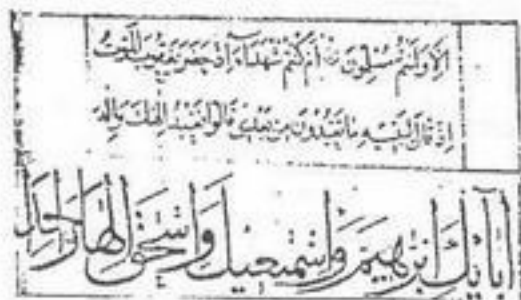 الا وانتم مسلمون ام كنتم شهداء اذ حضر يعقوب الموت
اذ قال لبنيه ما تعبدون من بعدى قالوا نعبد الهك واله
اٰبآئك ابرٰهيم واسمٰعيل واسحٰق الها واحدا